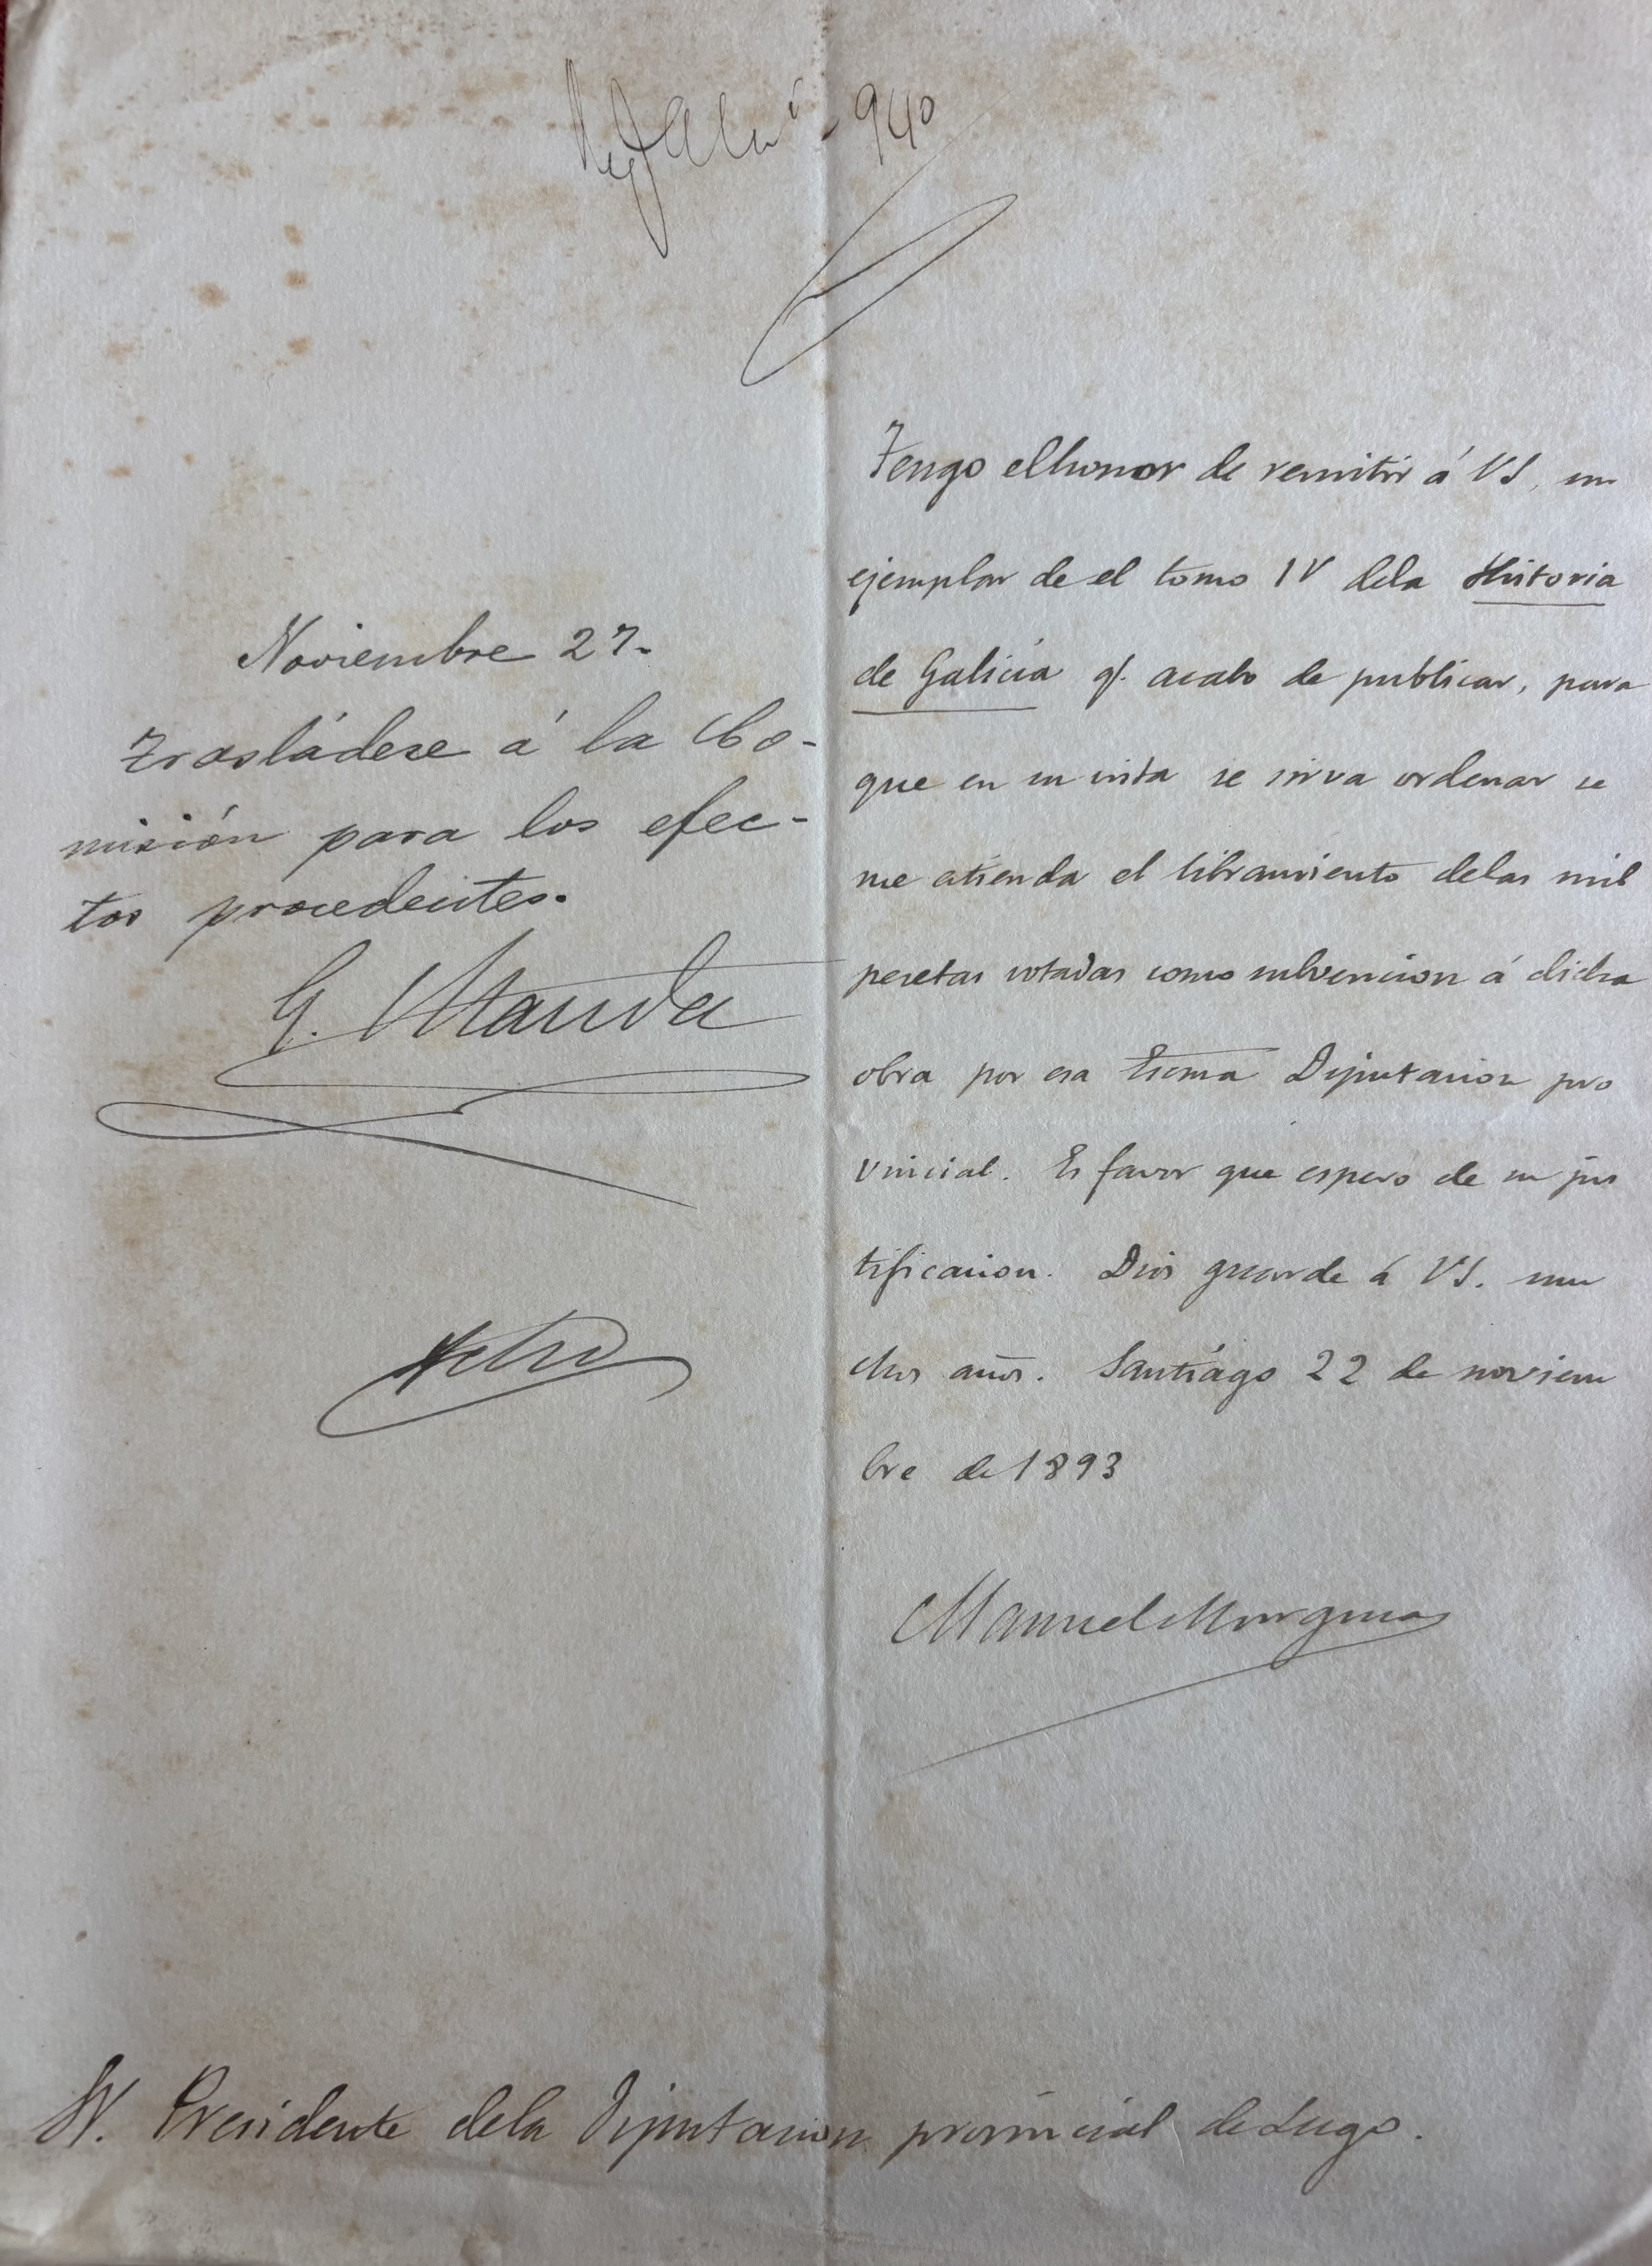 940
Tengo el honor de remitir á VS, un
ejemplar de el tomo IV dela Historia
de Galicia q. acabo de publicar, para
que en su vista se sirva ordenar se
me atienda el libramiento delas mil
pesetas votadas como subvencion á dicha
obra por esa Escma Diputacion pro
vincial. Es favor que espero de su jus
tificacion. Dios guarde á VS. mu
chos años. Santiago 22 de noviem
bre de 1893
Manuel Murguia
Noviembre 27.
Trasládese á la Co-
misión para los efec-
tos procedentes.
Sr. Presidente dela Diputacion provincial de Lugo.